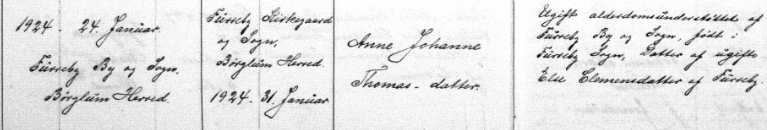 1924. 24. Januar.
Furreby By og Sogn,
Börglum Herred.
Furreby Kirkegaard
og Sogn,
Börglum Herred.
1924. 31. Januar
Anne Johanne
Thomas-datter.
Ugift alderdomsunderstöttet af
Furreby By og Sogn, födt i
Furreby Sogn, Datter af ugifte
Else Clemensdatter af Furreby.